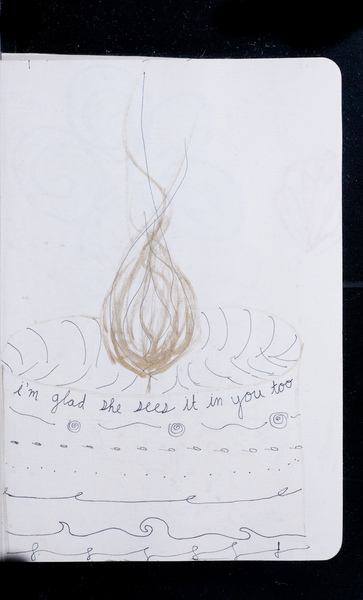 i'm glad she sees it in you too